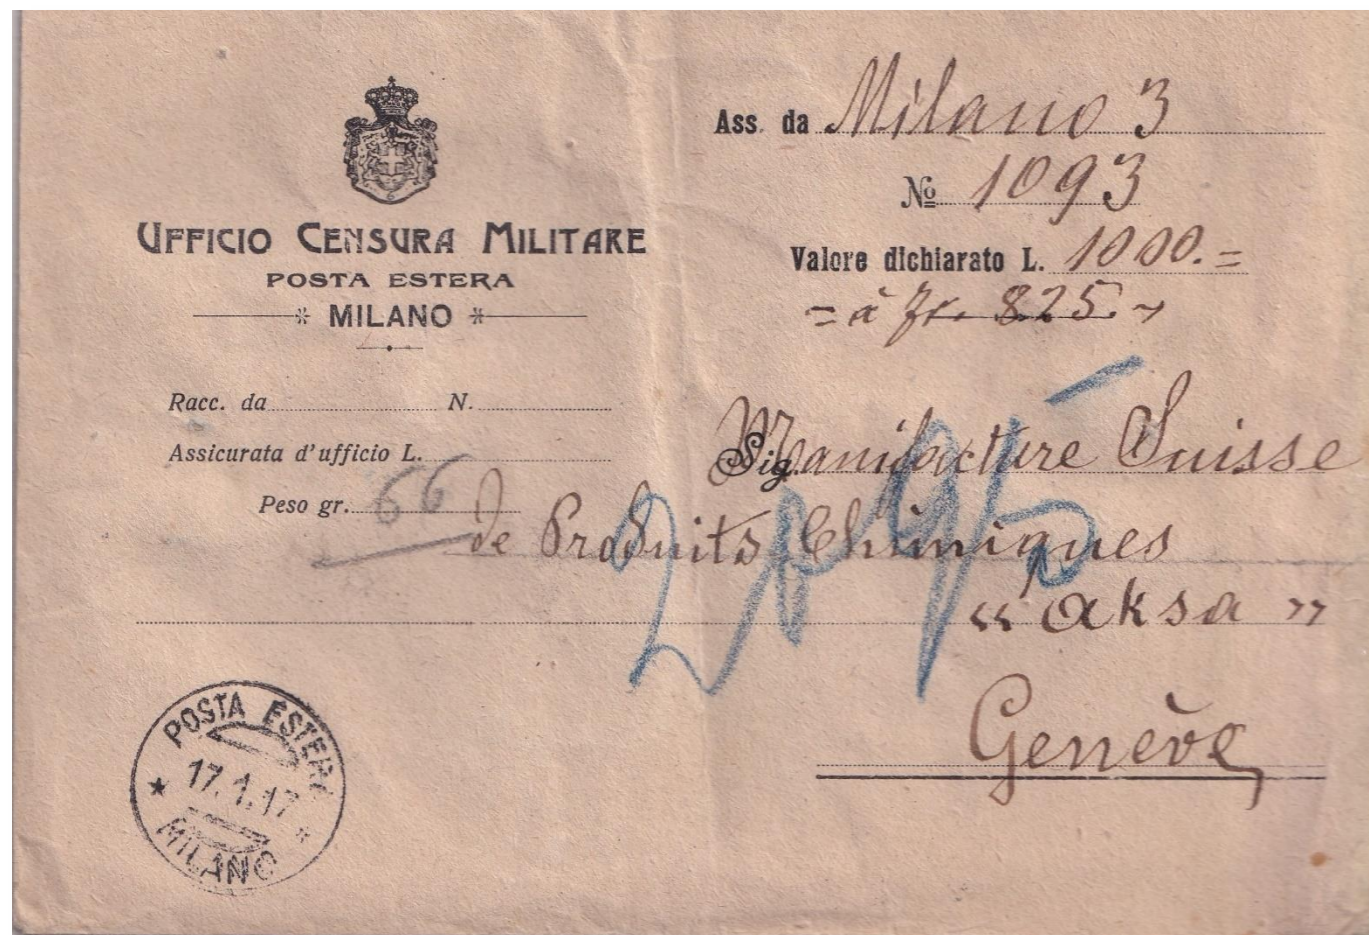 UFFICIO CENSURA MILITARE
POSTA ESTERA
MILANO
Racc. da N.
Assicurata d'ufficio L.
Peso gr. 66
Ass. da Milano 3
No 1093
Valore dichiarato L. 1000.=
= à fr. 825. -
Sig. Manifacture Suisse
de Produits Chimiques
« aksa »
Genève
POSTA ESTERA
17.1.17
MILANO